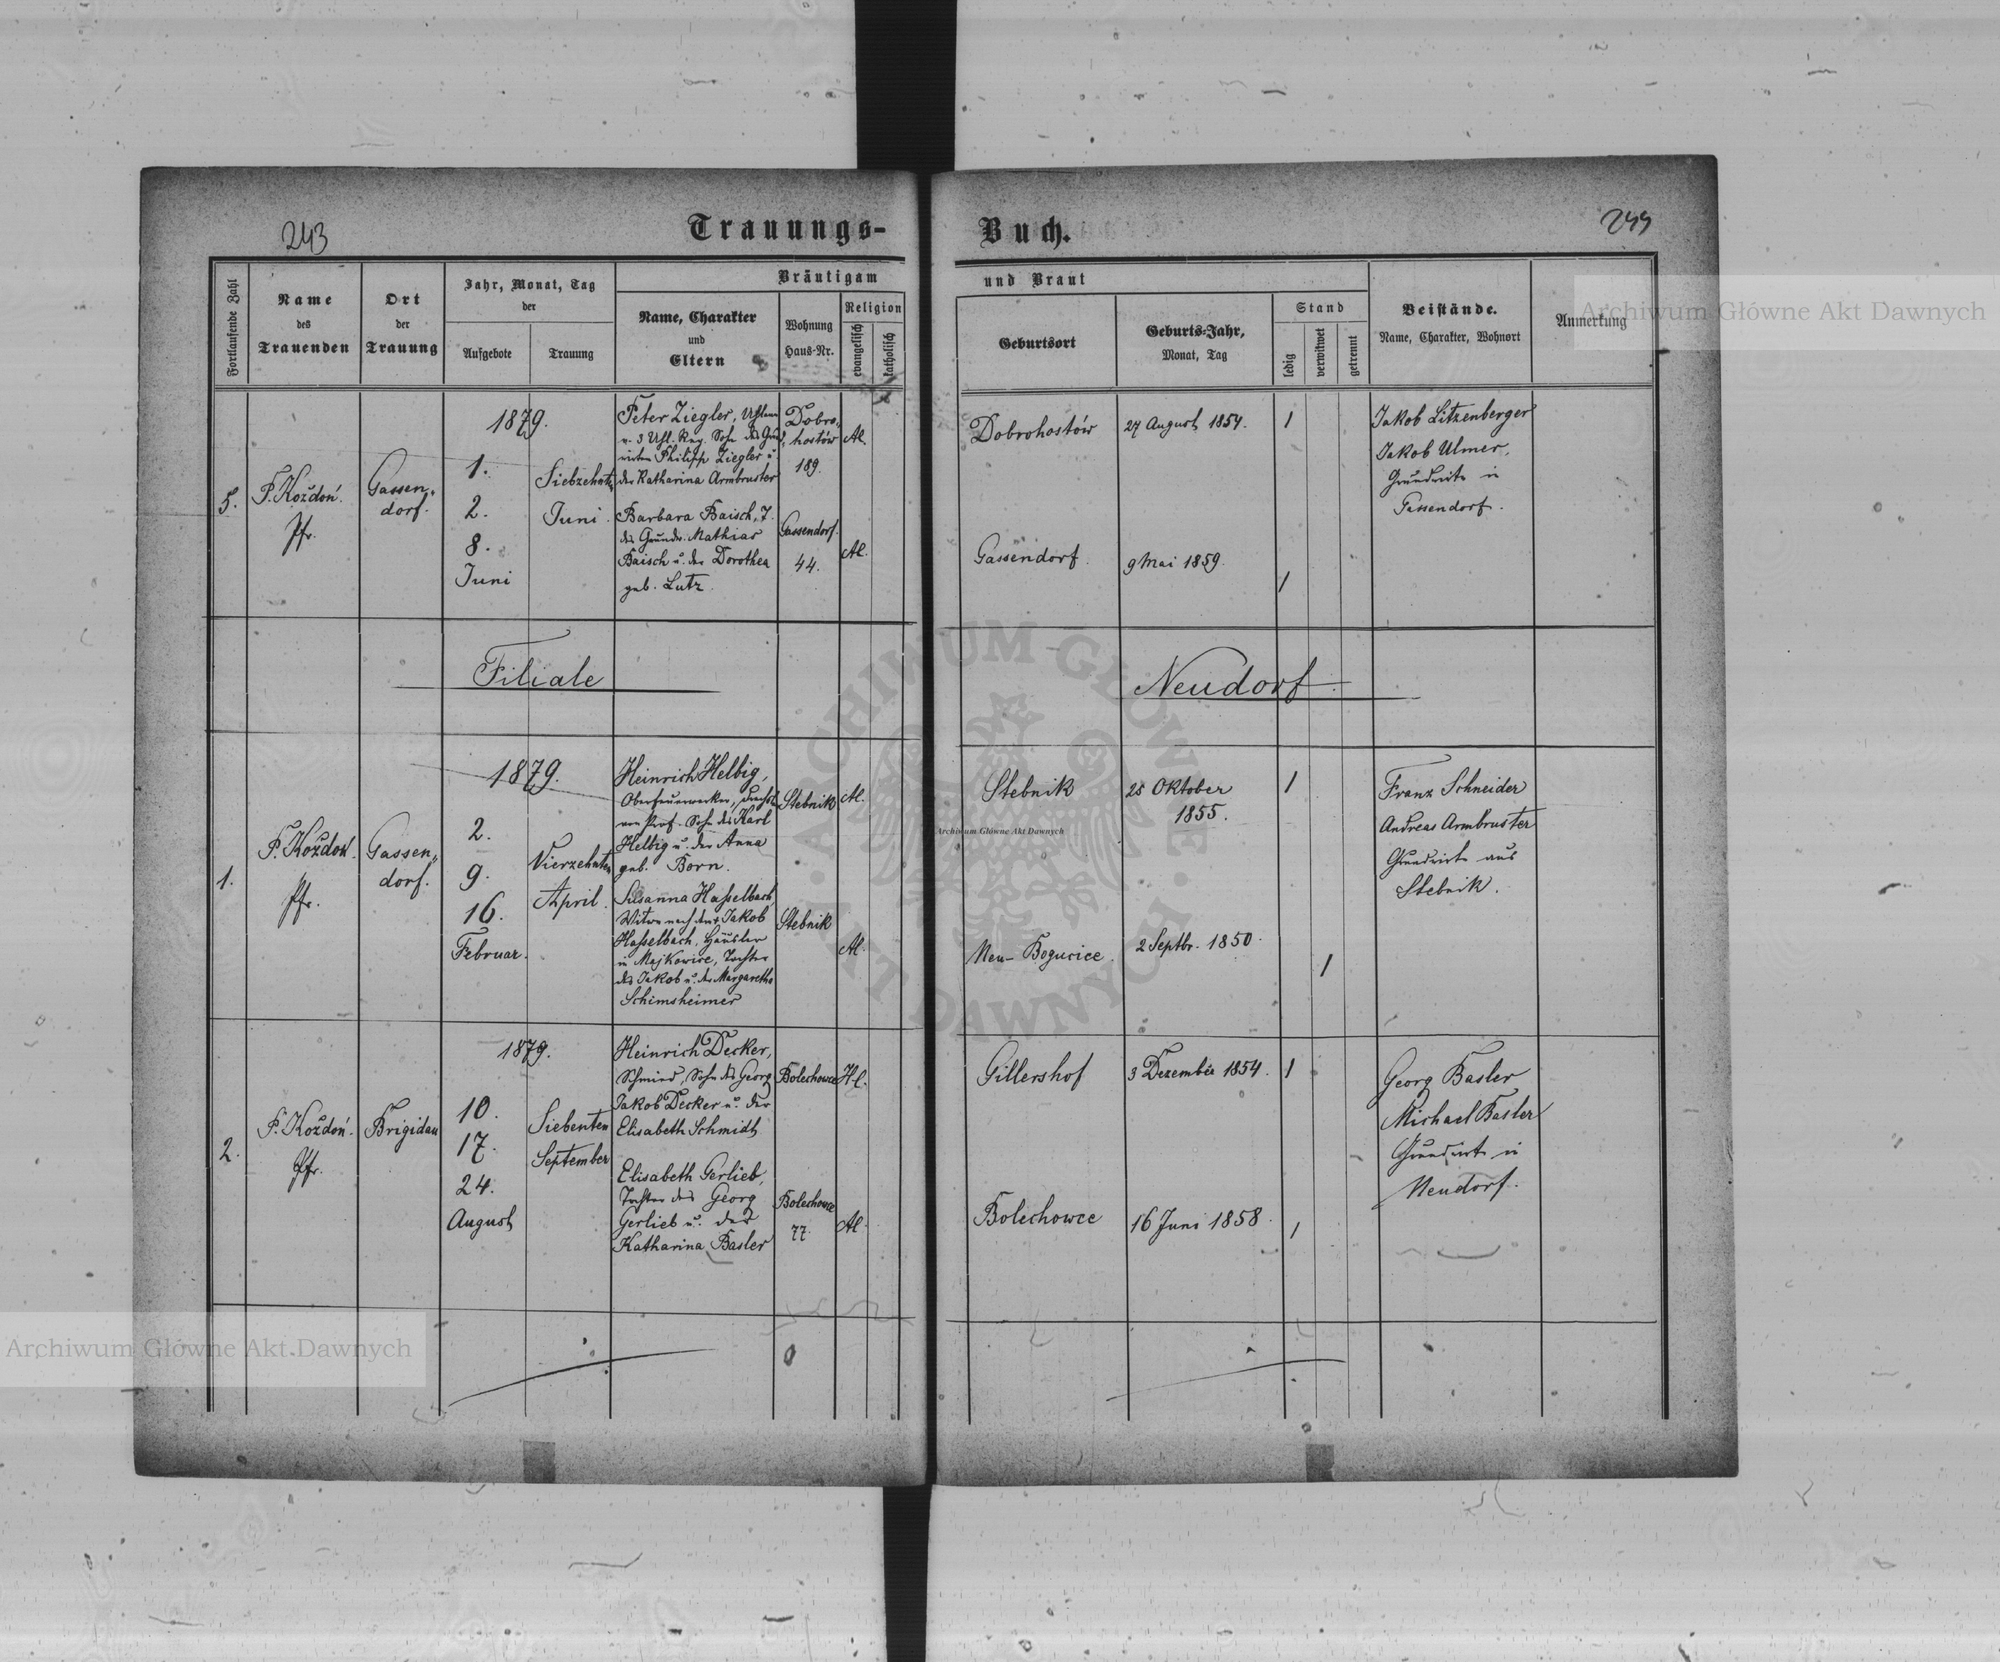 243
Trauungs-
Buch.
244
Fortlaufende Zahl
Name
des
Trauenden
Ort
der
Trauung
Jahr, Monat, Tag
der
Aufgebote
Trauung
Bräutigam
Name, Charakter
und
Eltern
Wohnung
Haus-Nr.
Religion
evangelisch
katholisch
und Braut
Geburtsort
Geburts-Jahr,
Monat, Tag
Stand
ledig
verwitwet
getrennt
Beistände.
Name, Charakter, Wohnort
Anmerkung
5.
F. Koždoń.
Pfr.
Gassen-
dorf.
1879.
1.
2.
8.
Juni
Siebzehnten
Juni.
Peter Ziegler, Uhlan
v. 3 Uhl. Reg. Sohn des Grund
wirten Philipp Ziegler u.
der Katharina Armbruster
Barbara Baisch, T.
des Grundw. Mathias
Baisch u. der Dorothea
geb. Lutz.
Dobro-
hostów
189.
Gassendorf.
44.
A.
A.
Dobrohostów
Gassendorf.
27 August 1854.
9 Mai 1859.
1
1
Jakob Litzenberger
Jakob Ulmer,
Grundwirte in
Gassendorf.
Filiale
Neudorf.
1.
F. Koždoń.
Pfr.
Gassen-
dorf.
1879.
2.
9.
16.
Februar.
Vierzehnten
April.
Heinrich Helbig,
Oberfeuerwerker,
von Prof. Sohn des Karl
Helbig u. der Anna
geb. Born.
Susanna Hasselbach,
Witwe nach dem Jakob
Hasselbach, Häusler
in Majkowice, Tochter
des Jakob u. der Margaretha
Schimsheimer
Stebnik
Stebnik
A.
A.
Stebnik
Neu-Bogucice.
25 Oktober
1855.
2 Septbr. 1850.
1
1
Franz Schneider
Andreas Armbruster
Grundwirte aus
Stebnik.
2.
F. Koždoń.
Pfr.
Brigidau
1879.
10.
17.
24.
August
Siebenten
September
Heinrich Decker,
Schmied, Sohn des Georg
Jakob Decker u. der
Elisabeth Schmidt
Elisabeth Gerlieb,
Tochter des Georg
Gerlieb u. der
Katharina Basler
Bolechowce
Bolechowce
77.
H.
A.
Gillershof
Bolechowce
3 Dezember 1854.
16 Juni 1858.
1
1
Georg Basler
Michael Basler
Grundwirte in
Neudorf.
Archiwum Główne Akt Dawnych
Archiwum Główne Akt Dawnych
Archiwum Główne Akt Dawnych
ARCHIWUM GŁÓWNE
AKT DAWNYCH